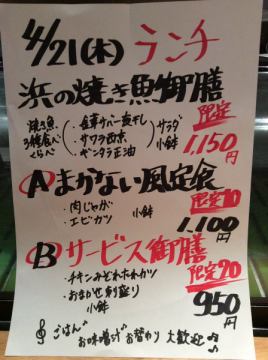 4/21(木) ランチ
浜の焼き魚御膳
限定
焼き魚
3種食べ
くらべ
・金華サバ一夜干し
・サワラ西京
・ギンダラ正油
サラダ
小鉢
1,150円
Ⓐまかない風定食
限定10
・肉じゃが
・エビカツ
小鉢
1,100円
Ⓑサービス御膳
限定20
・チキンみぞれカツ
・おまかせ刺盛り
小鉢
950円
ごはん
お味噌汁 お替わり 大歓迎♪